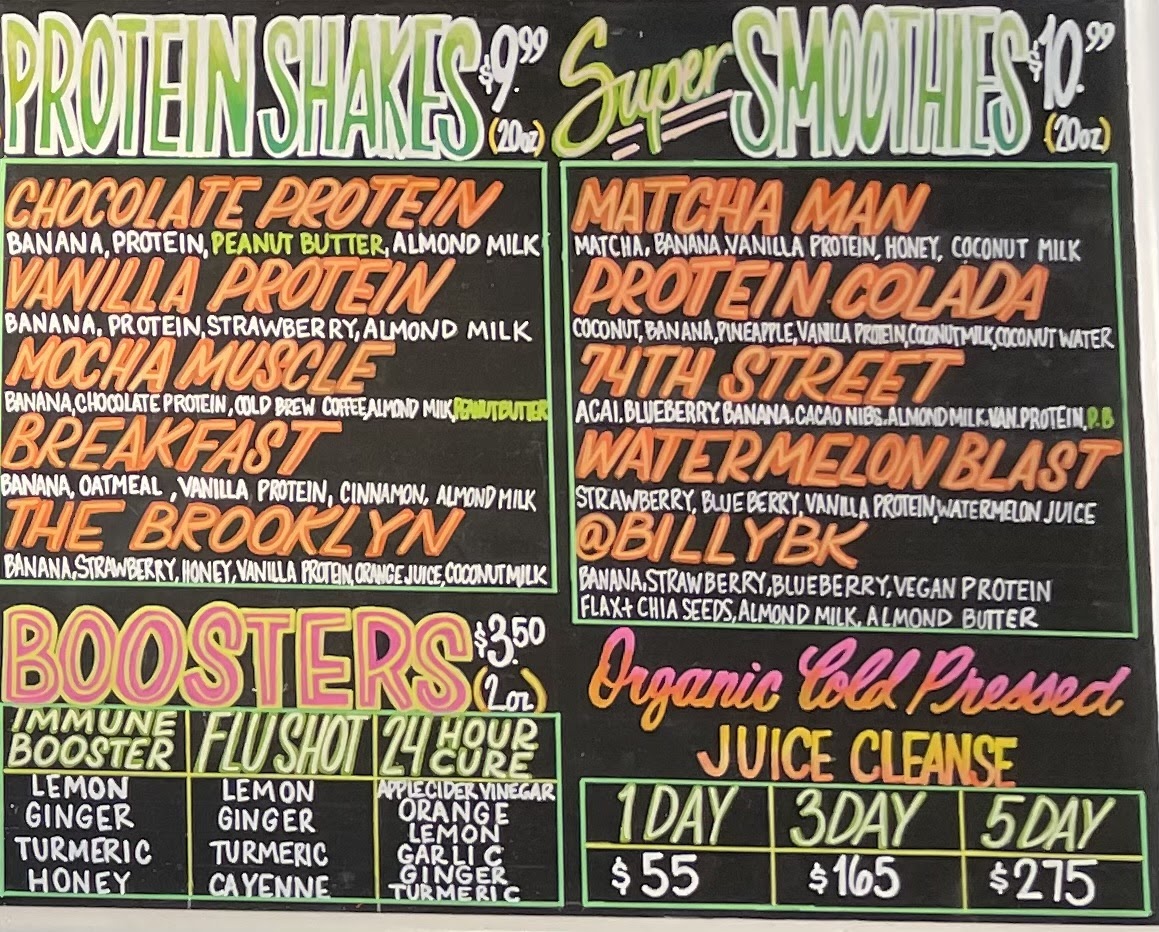 PROTEIN SHAKES $9.99 (20oz)
CHOCOLATE PROTEIN
BANANA, PROTEIN, PEANUT BUTTER, ALMOND MILK
VANILLA PROTEIN
BANANA, PROTEIN, STRAWBERRY, ALMOND MILK
MOCHA MUSCLE
BANANA, CHOCOLATE PROTEIN, COLD BREW COFFEE, ALMOND MILK, PEANUT BUTTER
BREAKFAST
BANANA, OATMEAL, VANILLA PROTEIN, CINNAMON, ALMOND MILK
THE BROOKLYN
BANANA, STRAWBERRY, HONEY, VANILLA PROTEIN, ORANGE JUICE, COCONUT MILK
Super SMOOTHIES $10.99 (20oz)
MATCHA MAN
MATCHA, BANANA, VANILLA PROTEIN, HONEY, COCONUT MILK
PROTEIN COLADA
COCONUT, BANANA, PINEAPPLE, VANILLA PROTEIN, COCONUT MILK, COCONUT WATER
74TH STREET
ACAI, BLUEBERRY, BANANA, CACAO NIBS, ALMOND MILK, VAN. PROTEIN, P.B
WATERMELON BLAST
STRAWBERRY, BLUEBERRY, VANILLA PROTEIN, WATERMELON JUICE
@BILLYBK
BANANA, STRAWBERRY, BLUEBERRY, VEGAN PROTEIN
FLAX + CHIA SEEDS, ALMOND MILK, ALMOND BUTTER
BOOSTERS $3.50 (2oz)
IMMUNE BOOSTER
LEMON
GINGER
TURMERIC
HONEY
FLU SHOT
LEMON
GINGER
TURMERIC
CAYENNE
24 HOUR CURE
APPLE CIDER VINEGAR
ORANGE
LEMON
GARLIC
GINGER
TURMERIC
Organic Cold Pressed
JUICE CLEANSE
1 DAY 3 DAY 5 DAY
$55 $165 $275